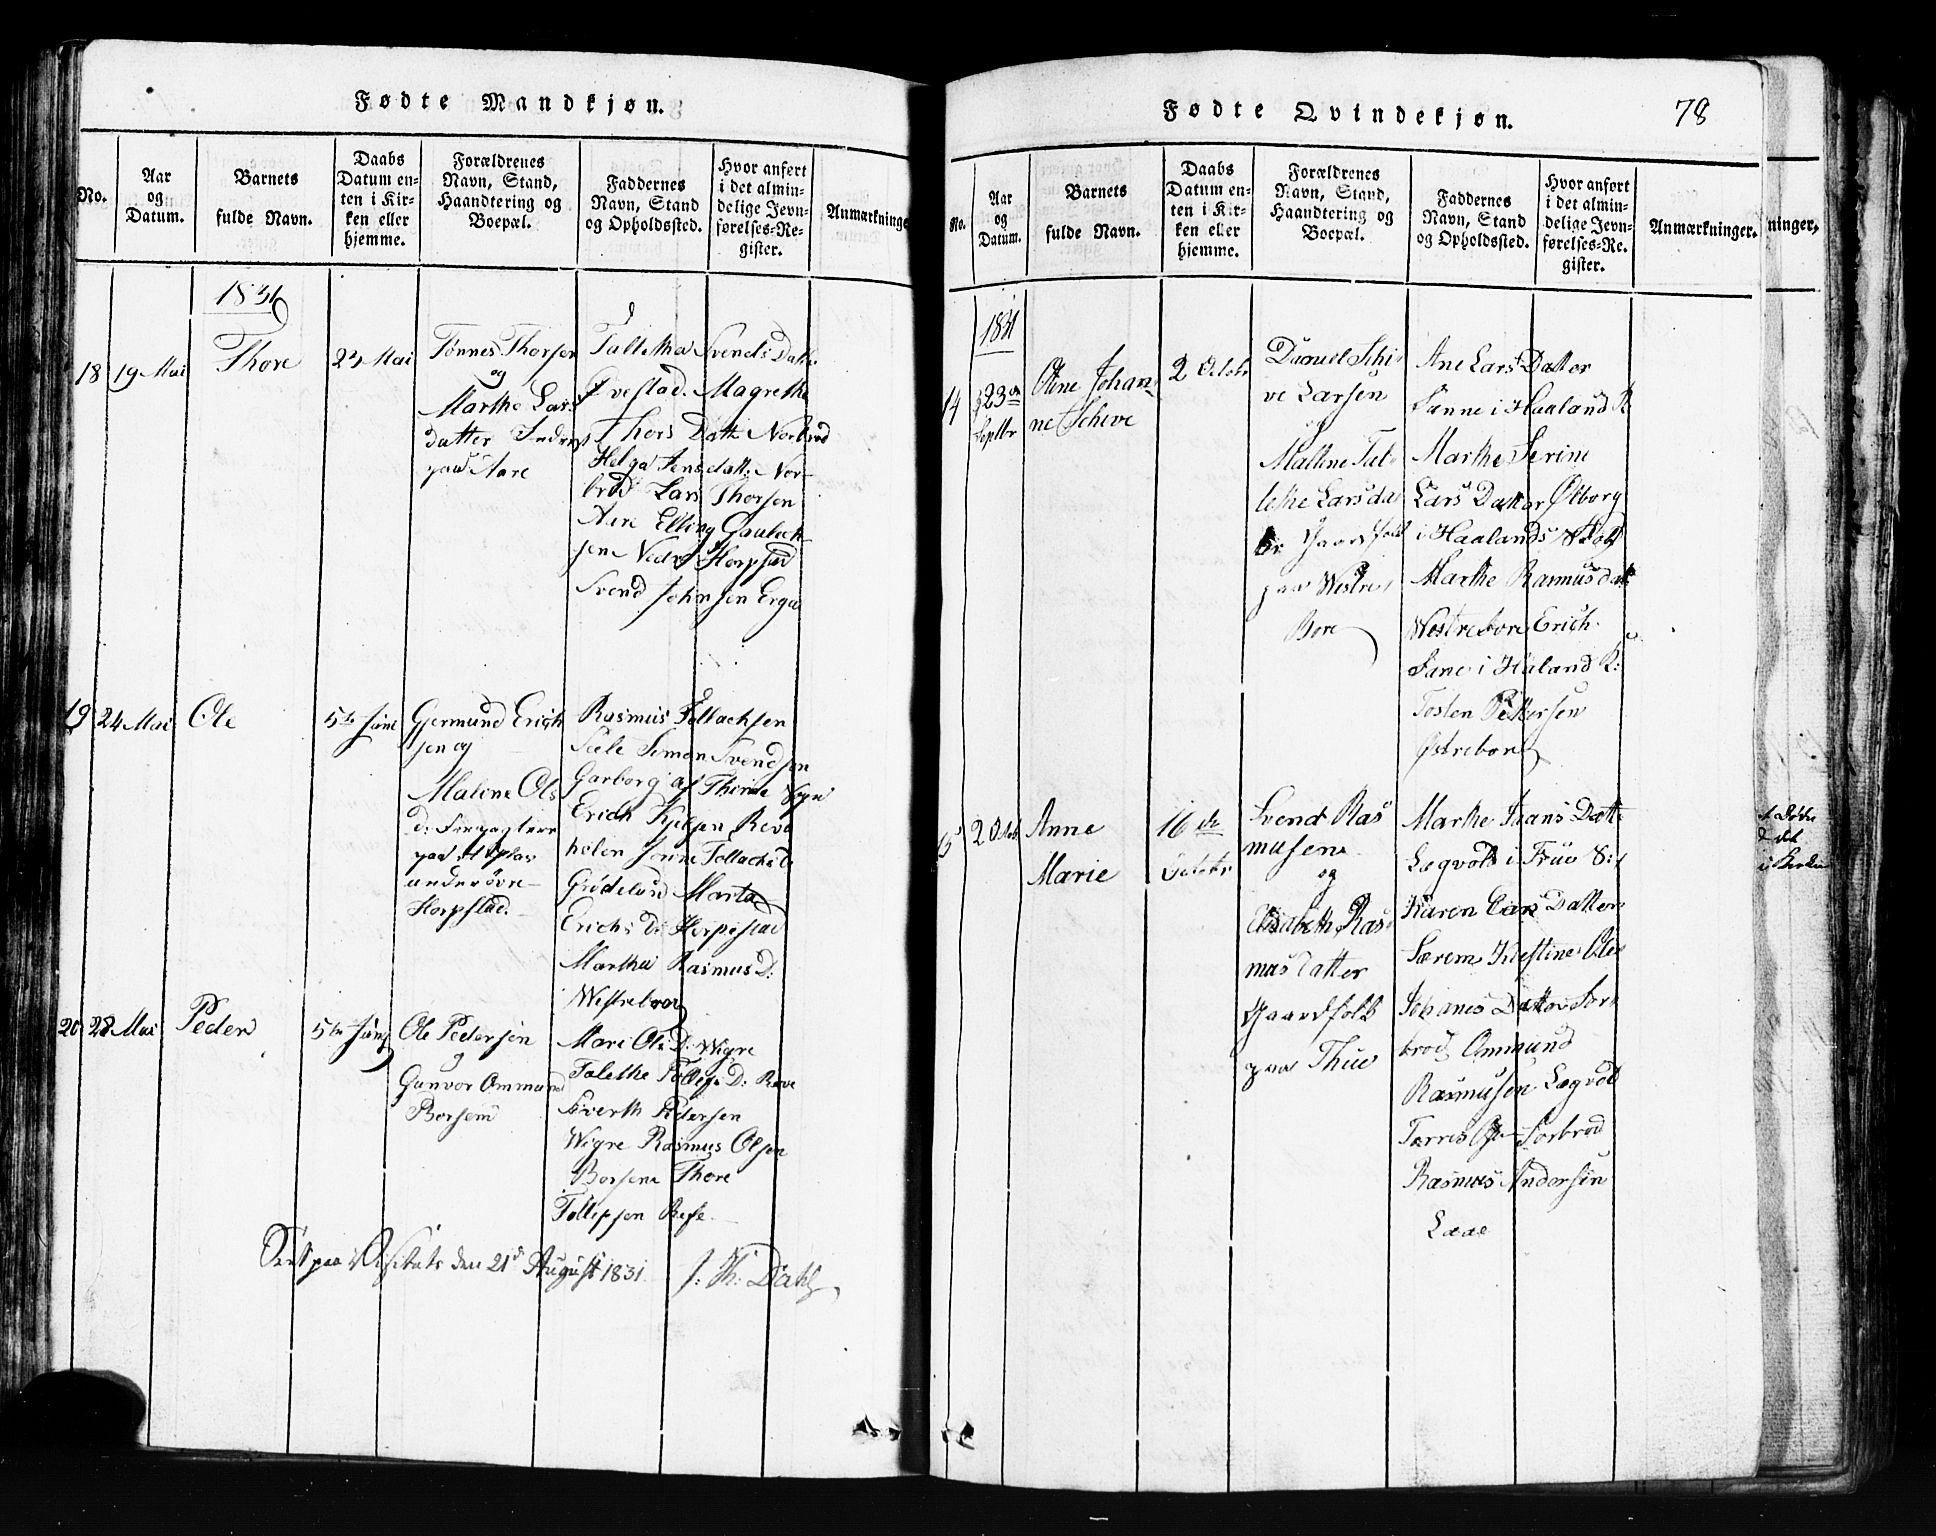 Fødte Mandkjøn.
No.
Aar
og
Datum.
Barnets
fulde Navn.
Daabs
Datum en-
ten i Kir-
ken eller
hjemme.
Forældrenes
Navn, Stand,
Haandtering og
Boepæl.
Faddernes
Navn, Stand
og Opholdssted.
Hvor anført
i det almin-
delige Jevn-
førelses-Re-
gister.
Anmærkninge
1831
18
19 Mai
Thore
Mai
Tønnes Thorsen
og
Marthe Lars
datter
paa Aare
Taletha Svends Datt
Magrethe
Thors Datt Norbrod
Helga Jens datt: Nor-
brod Lars Thorsen
Aare Elling Gautach
sen Nedre Horpstad
Svend Johnsen Erga
19
24 Mai
Ole
5te Juni
Gjermund Erich
sen og
Malene Ols
d:
paa
under øvre
Horpstad.
Rasmus Tollachsen
Sæle Simon Svendsen
Garborg af Thime Sogn
Erich Kjelsen Reve
Tollachs D
Grødeland Marta
Erichs D: Horpestad
Martha Rasmus D:
Westreboor
20
28 Mai
Peder
5te Juni
Ole Pedersen
og
Gunvor Ommund
Borsem
Mari Ols D: Wigre
Talethe Tollefs D: Reve
Siverth Pedersen
Wigre Rasmus Olsen
Borsem Thore
Tollefsen Refe
Seet paa Visitats den 21de August 1831. J: K: Dahl
Fødte Qvindekjøn.
78
No.
Aar
og
Datum.
Barnets
fulde Navn.
Daabs
Datum en-
ten i Kir-
ken eller
hjemme.
Forældrenes
Navn, Stand,
Haandtering og
Boepæl.
Faddernes
Navn, Stand
og Opholdssted.
Hvor anført
i det almin-
delige Jevn-
førelses-Re-
gister.
Anmærkninger.
ninger.
1831
14
23
Septbr
Johan-
ne Scheve
2 Octobr
Daniel Schi-
ve Larsen
og
Mallene Tal-
lethe Larsdat
Gaardfolk
paa Westre
Bore
Ane Lars Datter
Sanne i Haaland
Marthe Serine
Lars Datter Ølborg
i Haalands
Marthe Rasmusdatt
Westrebore Erich
Sane i Haland
Tosten Pettersen
Østrebore
15
2 Octob
Anne
Marie
16 de
Octobr
Svend Ras
musen
og
Elisabeth Ras-
mus datter
Gaardfolk
paa Thue
Marthe Datt
Legvold i
Karen Lars Datter
Særem
Johanes Datter Sør-
brod Ommund
Rasmusen Legvold
Torris Sorbrod
Rasmus Andersen
Laae